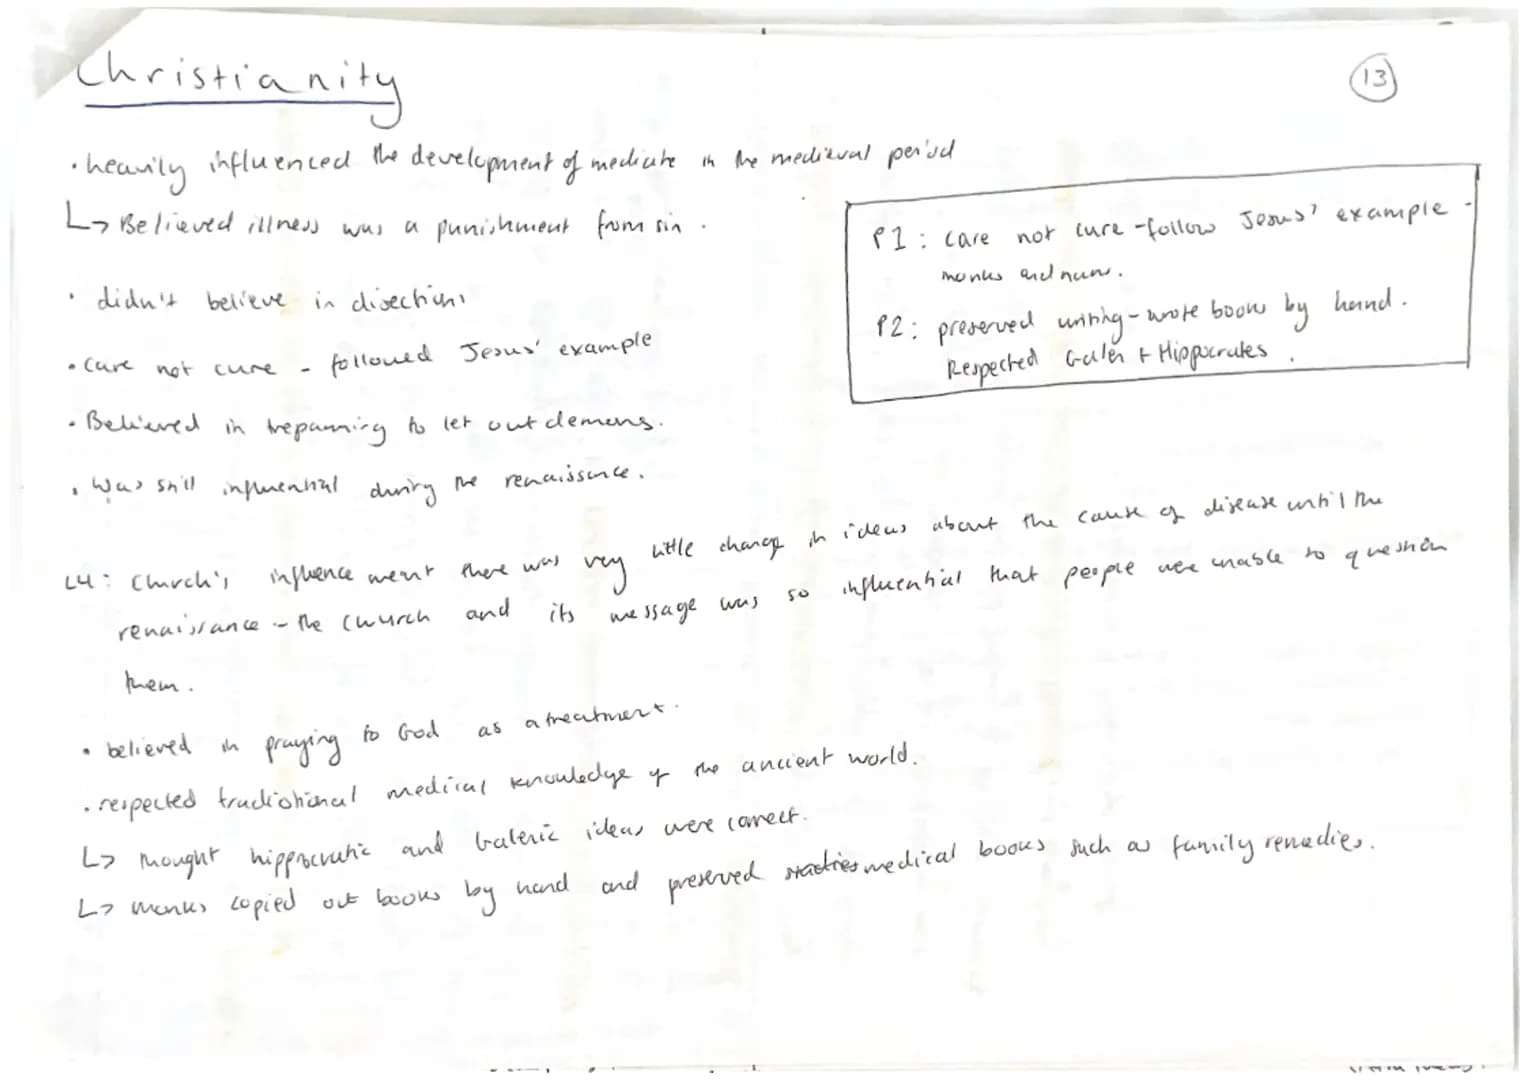 Christianity
13
• heavily influenced the development of mediate in the medieval period
↳ Believed illness was a punishment from sin.
• didn't believe in disections
• care not cure - followed Jesus' example
• Believed in trepanning to let out demons.
• Was still influential during the renaissance.
P1: care not cure - follow Jesus' example -
monks and nuns.
P2: preserved writing - wrote books by hand.
Respected Galen + Hippocrates.
L4: Church's influence meant there was very little change in ideas about the cause of disease until the
renaissance - the church and its message was so influential that people were unable to question
them.
• believed in praying to God as a treatment.
• respected traditional medical knowledge of the ancient world.
↳ thought hippocratic and Galenic ideas were correct.
↳ monks copied out books by hand and preserved medical books such as family remedies.